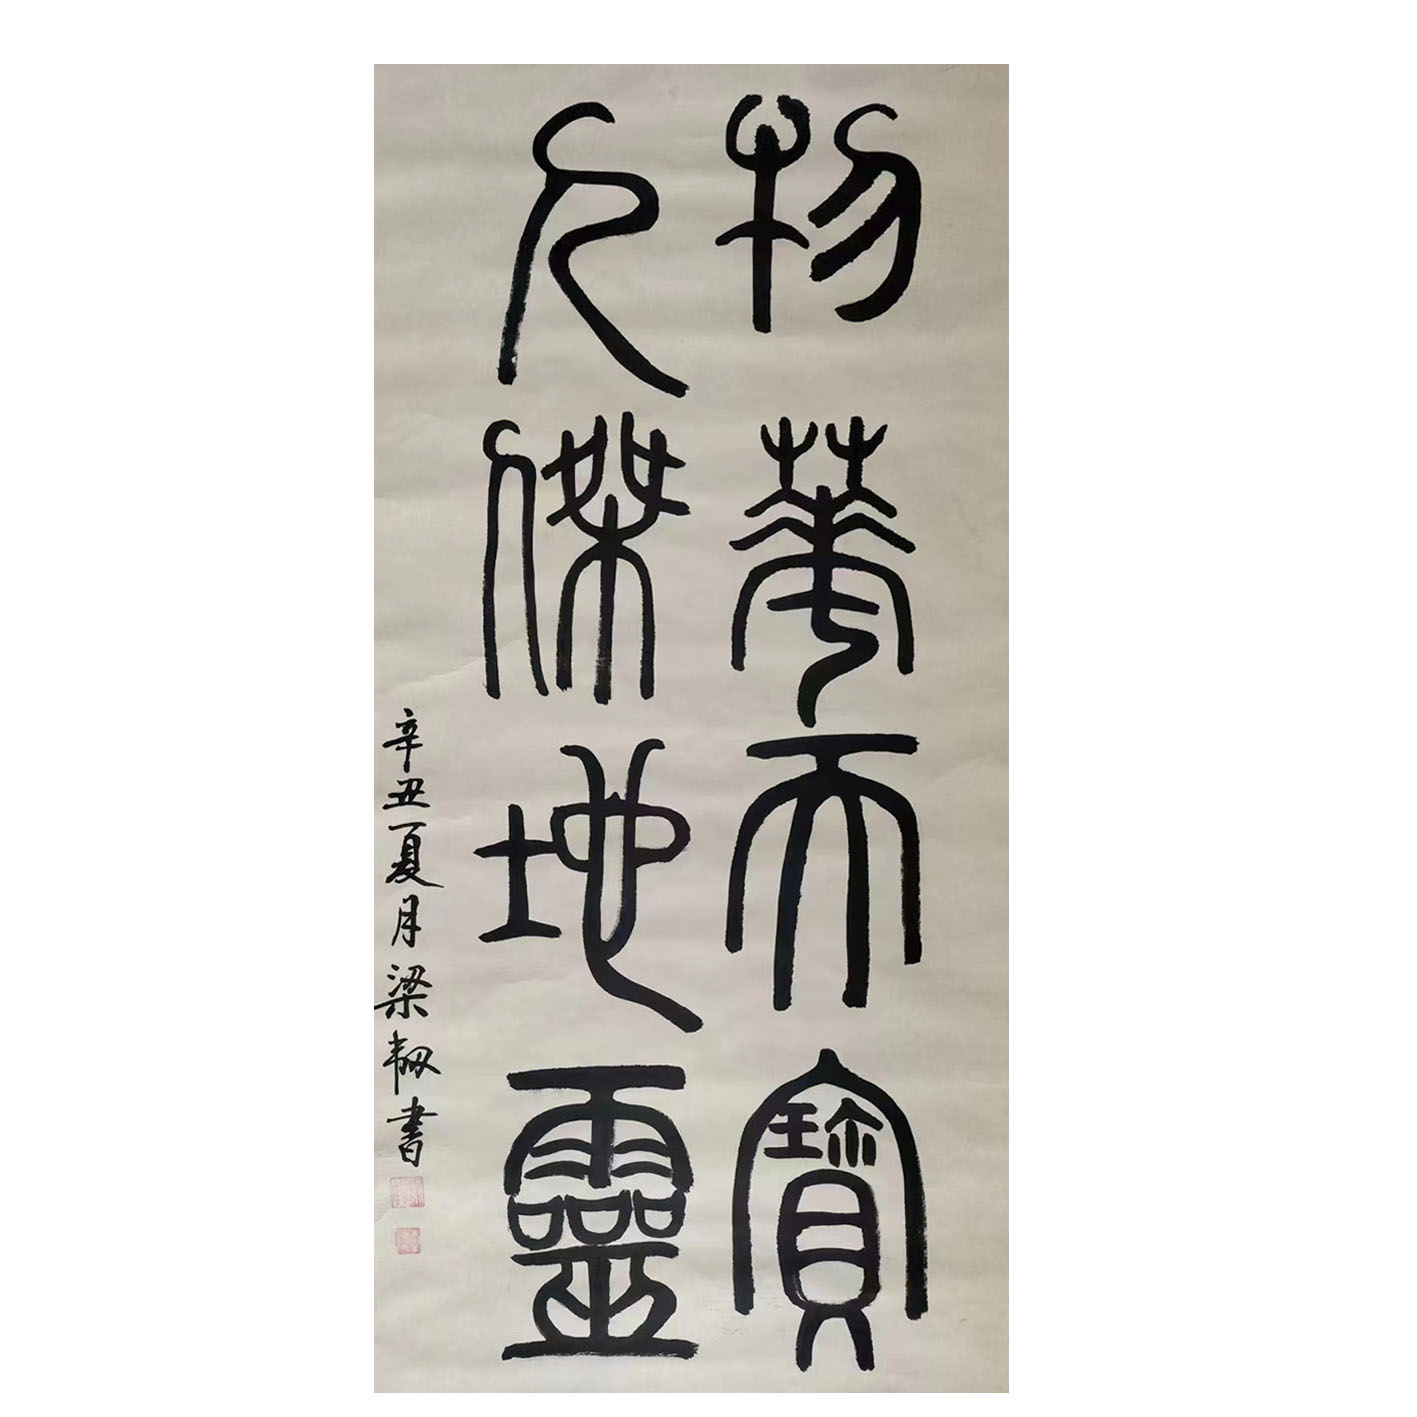 物華天寶
人傑地靈
辛丑夏月梁韧書